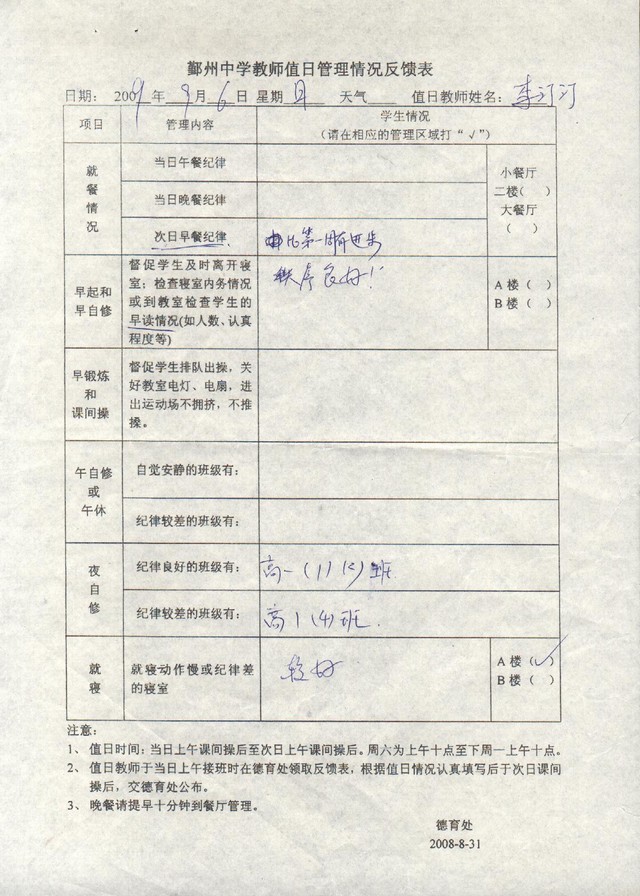 鄞州中学教师值日管理情况反馈表
日期： 2009 年 9 月 6 日 星期 日 天气 值日教师姓名： 李汀汀
项目 管理内容 学生情况
（请在相应的管理区域打“√”）
就餐情况
当日午餐纪律
当日晚餐纪律
次日早餐纪律 比第一周有进步
小餐厅
二楼（ ）
大餐厅
（ ）
早起和
早自修
督促学生及时离开寝
室；检查寝室内务情况
或到教室检查学生的
早读情况(如人数、认真
程度等)
秩序良好！
A 楼（ ）
B 楼（ ）
早锻炼
和
课间操
督促学生排队出操，关
好教室电灯、电扇，进
出运动场不拥挤，不推
搡。
午自修
或
午休
自觉安静的班级有：
纪律较差的班级有：
夜自修
纪律良好的班级有： 高一
班
纪律较差的班级有： 高1（4）班.
就寝
就寝动作慢或纪律差
的寝室
较好
A 楼（√）
B 楼（ ）
注意：
1、 值日时间：当日上午课间操后至次日上午课间操后。周六为上午十点至下周一上午十点。
2、 值日教师于当日上午接班时在德育处领取反馈表，根据值日情况认真填写后于次日课间
操后，交德育处公布。
3、 晚餐请提早十分钟到餐厅管理。
德育处
2008-8-31